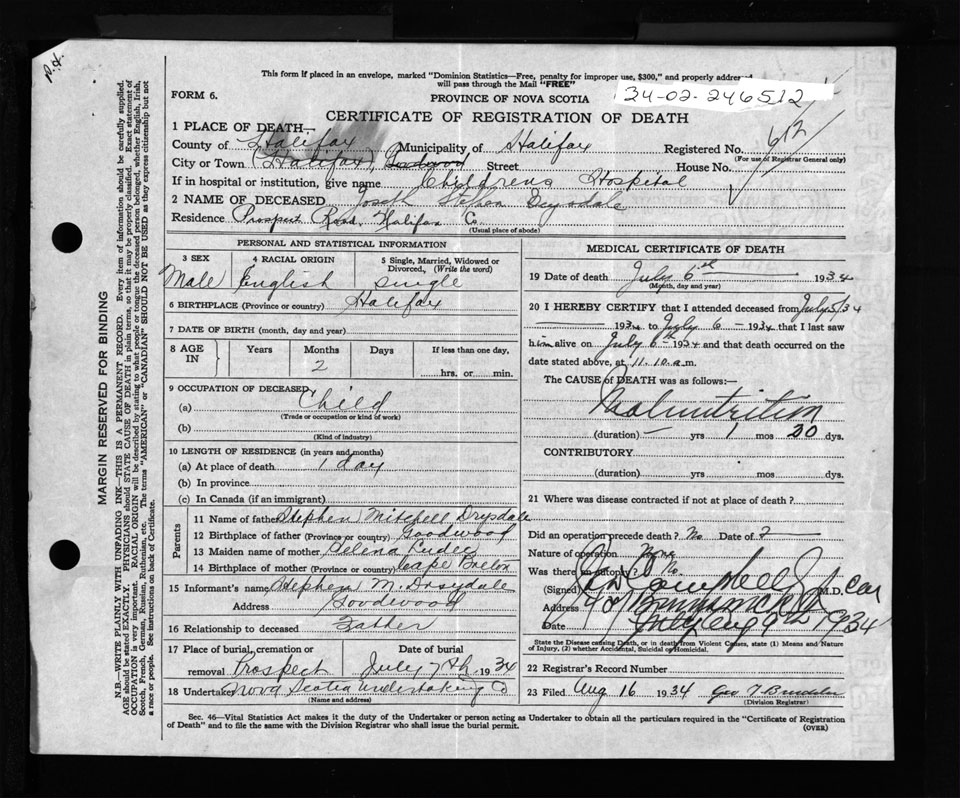 N.H.
This form if placed in an envelope, marked "Dominion Statistics—Free, penalty for improper use, $300," and properly addressed
will pass through the Mail "FREE"
34-02-246512
FORM 6.
PROVINCE OF NOVA SCOTIA
CERTIFICATE OF REGISTRATION OF DEATH
612
1 PLACE OF DEATH—
County of Halifax Municipality of Halifax Registered No.
(For use of Registrar General only)
City or Town (Halifax) Goodwood Street House No.
If in hospital or institution, give name Childrens Hospital
2 NAME OF DECEASED Joseph Stephen Drysdale
Residence Prospect Road. Halifax Co
(Usual place of abode)
PERSONAL AND STATISTICAL INFORMATION
3 SEX 4 RACIAL ORIGIN 5 Single, Married, Widowed or
Divorced, (Write the word)
Male English single
6 BIRTHPLACE (Province or country) Halifax
7 DATE OF BIRTH (month, day and year)
8 AGE IN Years Months Days If less than one day,
2 hrs. or min.
9 OCCUPATION OF DECEASED
(a) Child
(Trade or occupation or kind of work)
(b)
(Kind of industry)
10 LENGTH OF RESIDENCE (in years and months)
(a) At place of death 1 day
(b) In province
(c) In Canada (if an immigrant)
Parents
11 Name of father Stephen Mitchell Drysdale
12 Birthplace of father (Province or country) Goodwood
13 Maiden name of mother Celena
14 Birthplace of mother (Province or country) Cape Breton
15 Informant's name Stephen M. Drysdale
Address Goodwood
16 Relationship to deceased Father
17 Place of burial, cremation or removal Date of burial
Prospect July 7th 1934
18 Undertaker Nova Scotia Undertaking Co
(Name and address)
MEDICAL CERTIFICATE OF DEATH
19 Date of death July 6th 1934
(Month, day and year)
20 I HEREBY CERTIFY that I attended deceased from July 5/34
1934 to July 6 - 1934 that I last saw
him alive on July 6th 1934 and that death occurred on the
date stated above, at 11.10 a.m.
The CAUSE of DEATH was as follows:—
Malnutrition
(duration) — yrs 1 mos 20 dys.
CONTRIBUTORY
(duration) yrs. mos. dys.
21 Where was disease contracted if not at place of death?
Did an operation precede death? No Date of?
Nature of operation None
Was there an autopsy? No
(Signed) Campbell M.D.
Address
Date Aug 9th 1934
State the Disease causing Death, or in death from Violent Causes, state (1) Means and Nature
of Injury, (2) whether Accidental, Suicidal or Homicidal.
22 Registrar's Record Number
23 Filed Aug 16 1934 Geo
(Division Registrar)
Sec. 46—Vital Statistics Act makes it the duty of the Undertaker or person acting as Undertaker to obtain all the particulars required in the "Certificate of Registration
of Death" and to file the same with the Division Registrar who shall issue the burial permit.
(OVER)
MARGIN RESERVED FOR BINDING
N.B.—WRITE PLAINLY WITH UNFADING INK—THIS IS A PERMANENT RECORD. Every item of information should be carefully supplied.
AGE should be stated EXACTLY. PHYSICIANS should STATE CAUSE OF DEATH in plain terms, so that it may be properly classified. Exact statement of
OCCUPATION is very important. RACIAL ORIGIN will be described by stating to what people or tongue the deceased person belonged, whether English, Irish,
Scotch, French, German, Russian, Ruthenian, etc. The terms "AMERICAN" or "CANADIAN" SHOULD NOT BE USED as they express citizenship but not
a race or people. See instructions on back of Certificate.